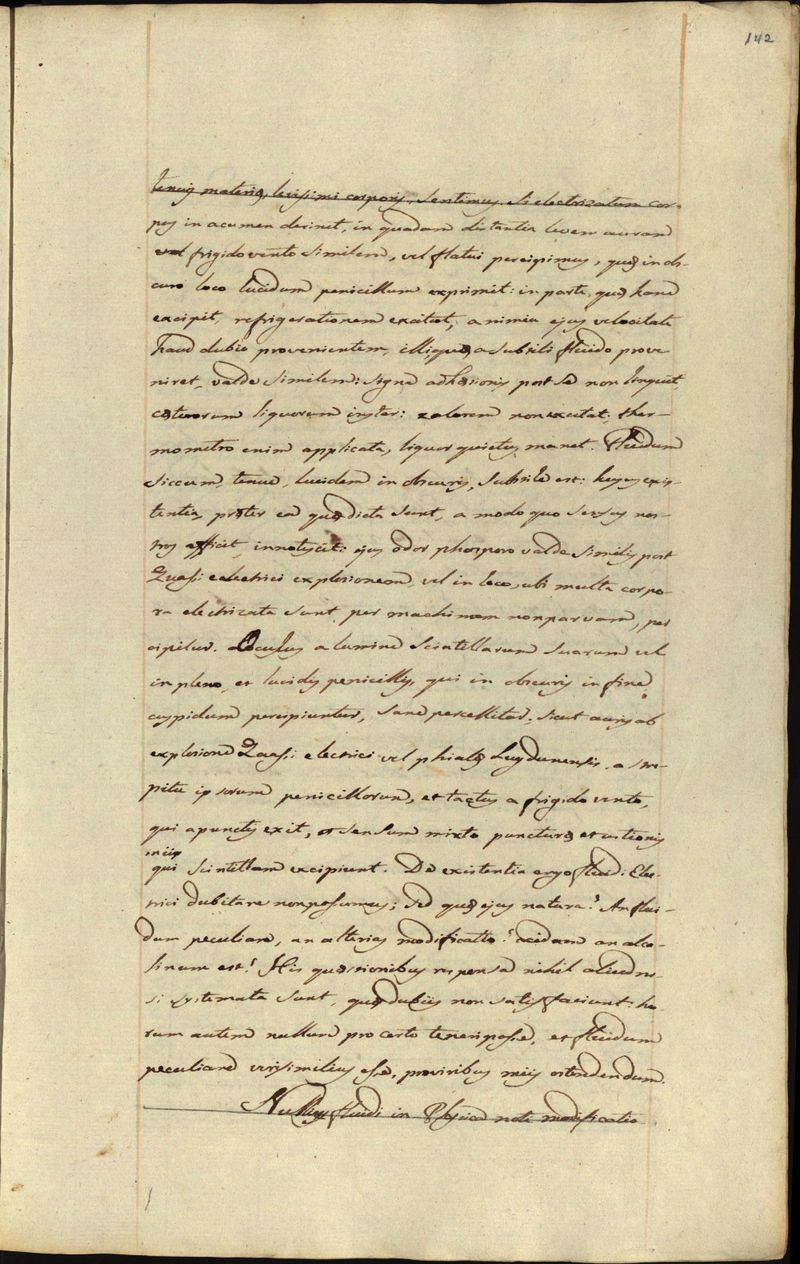 142
tenuis materiæ, levissimi corporis, sentimus. Si electrizatum cor-
pus in acumen desinet, in quadam distantia levem auram
vel frigido vento similem, vel flatui percipimus, quæ in obs-
curo loco lucidum penicillum exprimit: in parte, quæ hanc
excipit, refrigerationem excitat, a nimia ejus velocitate
haud dubie provenientem, illique, quæ a subtili fluido prove-
niret, valde similem: signa adhæsionis post se non linquit,
cæterorum liquorum instar: calorem non excitat; ther-
mometro enim applicata, liquor quietus manet. Fluidum
siccum, tenue, lucidum in obscuris, subtile est: hujus exis-
tentia, præter ea quæ dicta sunt, a modo quo sensus nos-
tros afficit, innotescit: ejus odor phosporo valde similis post
Quassi electrici explosionem, vel in loco, ubi multa corpo-
ra electrizata sunt per machinam non parvam, per
cipitur. Oculus a lumine scintillarum suarum vel
in pleno, et lucidis penicillis, qui in obscuris in fine
cuspidum percipiuntur, sane percellitur; sicut auris ab
explosione Quassi electrici vel phialæ Lugdunensis, a stre-
pitu ipsorum penicillorum, et tactus a frigido vento,
qui a punctis exit, et sensum mixto puncturæ et ustionis
iniis
qui scintillam excipiunt. De existentia ergo fluidi Elec-
trici dubitare non possumus; sed quæ ejus natura? An flui-
dum peculiare, an alterius modificatio? acidum an alca-
linum est? His quæstionibus responsa nihil aliud ni-
si systemata sunt, quæ dubiis non satisfaciunt: ho-
rum autem nullum pro certo teneri posse, et fluidum
peculiare verisimilius esse, pro viribus meis ostendendum.
Nullius fluidi in Physica noti modificatio